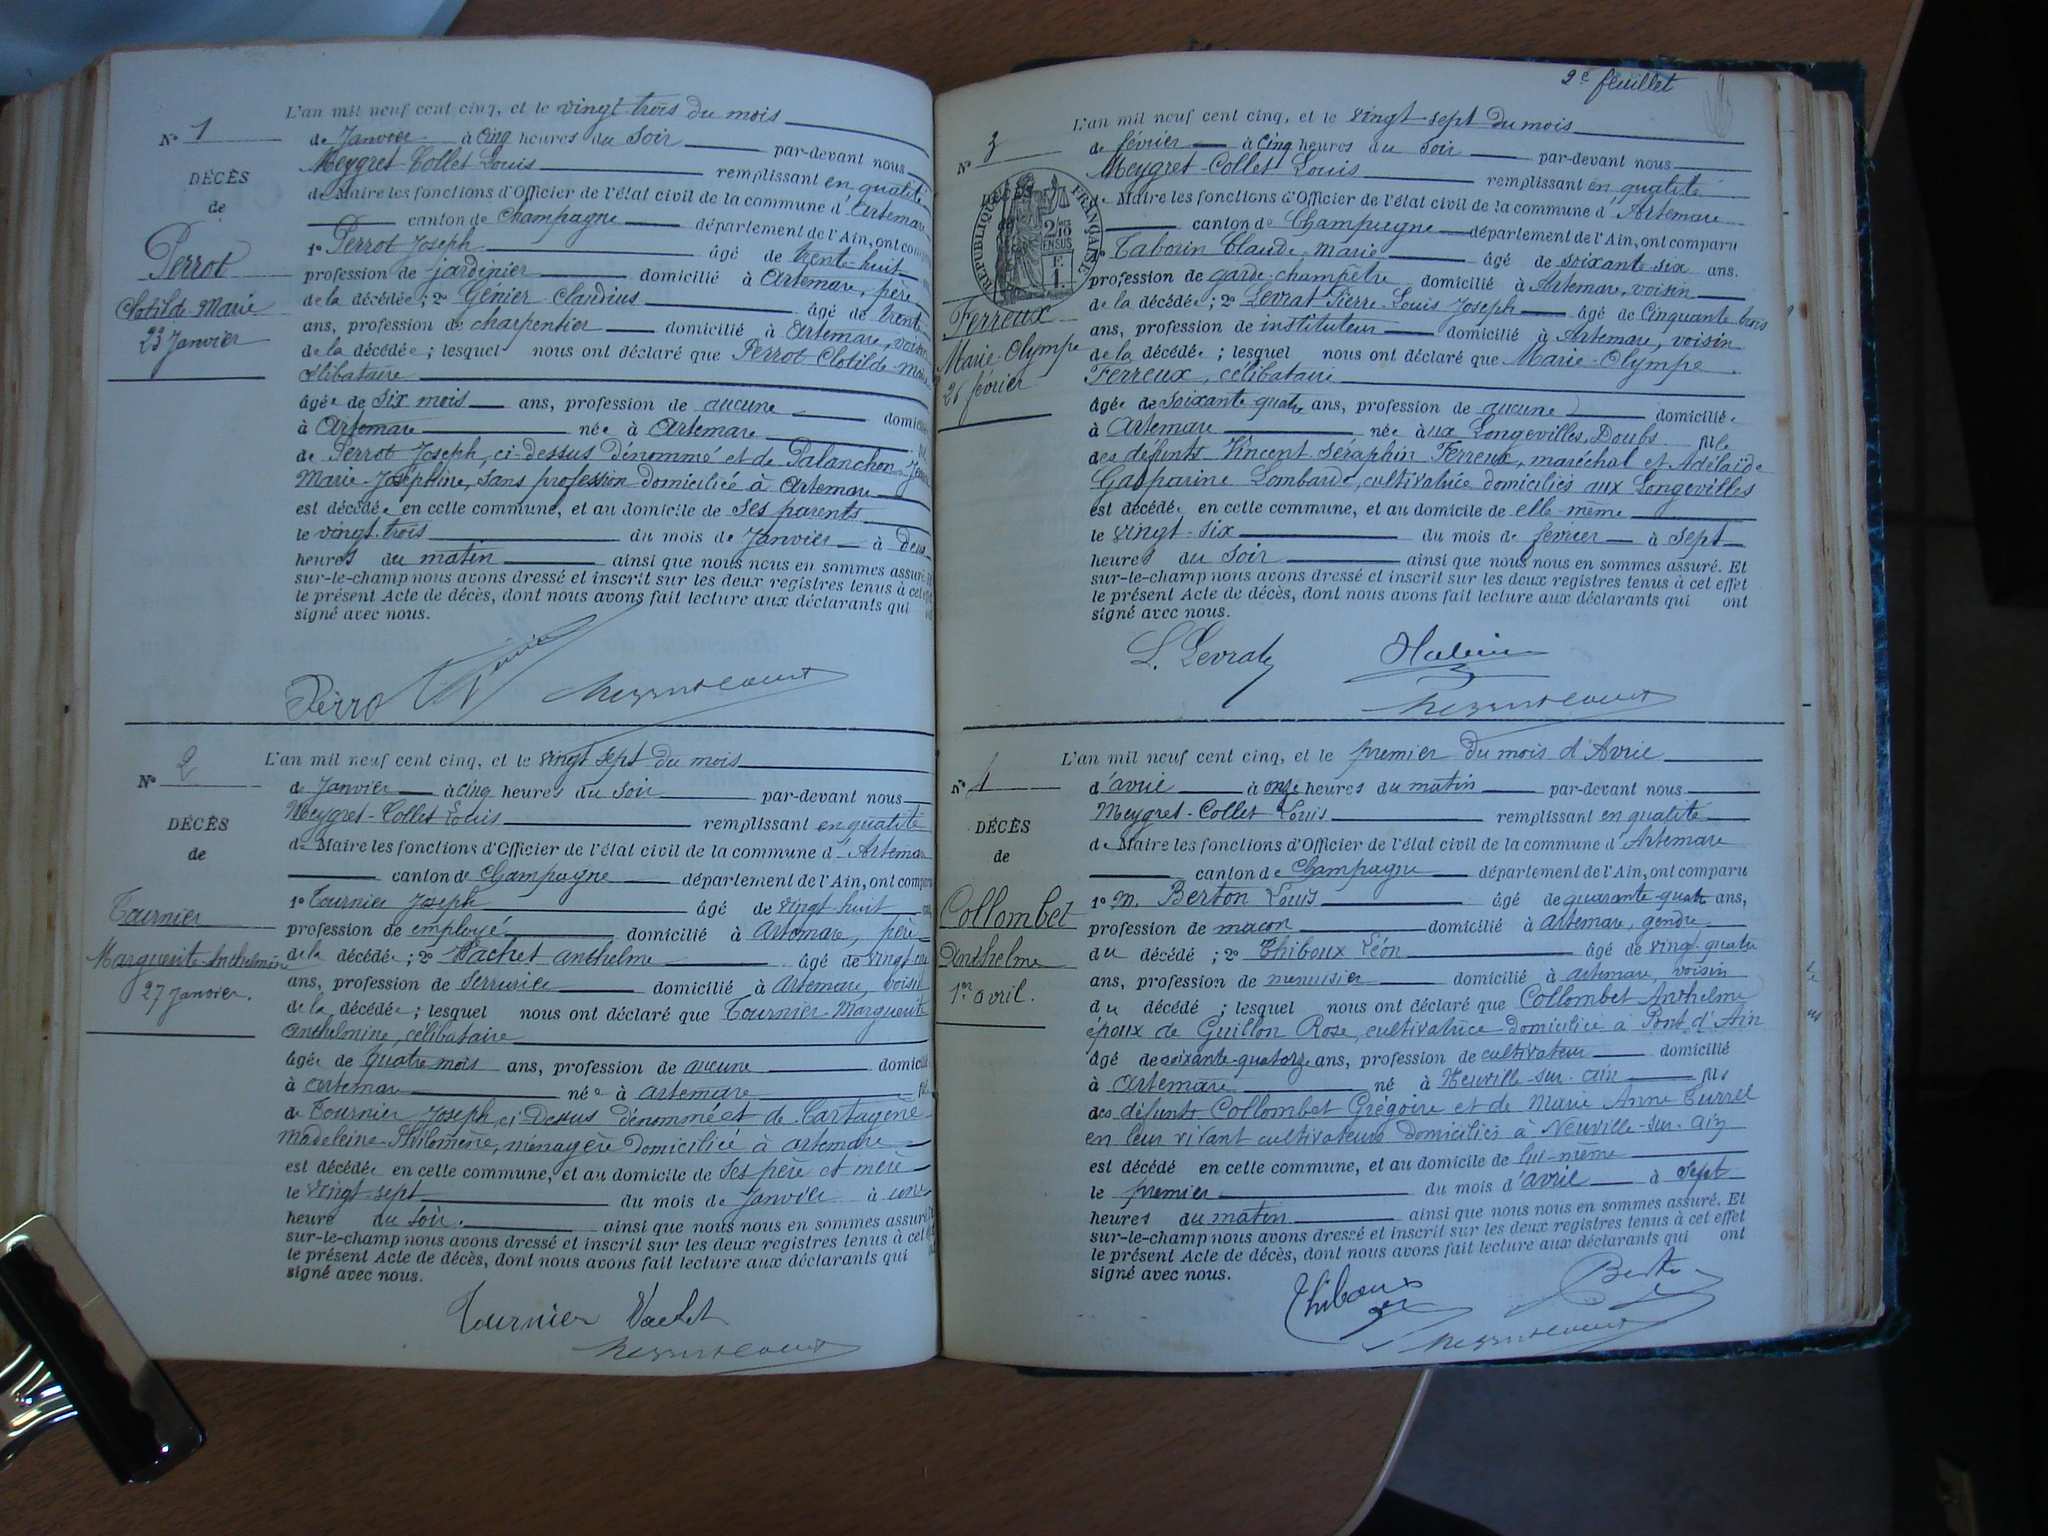 L'an mil neuf cent cinq, et le vingt-trois du mois
N° 1
de Janvier à cinq heures du soir par-devant nous
Meygret-Collet Louis remplissant en qualité
de Maire les fonctions d'Officier de l'état civil de la commune d'Artemare
canton de Champagne département de l'Ain, ont comparu
1° Perrot Joseph âgé de trente-huit
profession de jardinier domicilié à Artemare, père
de la décédée ; 2° Génier Claudius âgé de trente
ans, profession de charpentier domicilié à Artemare, voisin
de la décédée ; lesquel nous ont déclaré que Perrot Clotilde-Marie
célibataire
âgée de six mois ans, profession de aucune domicilié
à Artemare née à Artemare
de Perrot Joseph, ci-dessus dénommé et de Palanchon
Marie-Joséphine, sans profession domiciliée à Artemare
est décédée en cette commune, et au domicile de ses parents
le vingt-trois du mois de Janvier à deux
heures du matin ainsi que nous nous en sommes assuré. Et
sur-le-champ nous avons dressé et inscrit sur les deux registres tenus à cet effet
le présent Acte de décès, dont nous avons fait lecture aux déclarants qui
signé avec nous.
DÉCÈS
de
Perrot
Clotilde-Marie
23 Janvier
Perro
N° 2
L'an mil neuf cent cinq, et le vingt sept du mois
de Janvier à cinq heures du soir par-devant nous
Meygret-Collet Louis remplissant en qualité
de Maire les fonctions d'Officier de l'état civil de la commune d'Artemare
canton de Champagne département de l'Ain, ont comparu
1° Tournier Joseph âgé de vingt-huit
profession de employé domicilié à Artemare, père
de la décédée ; 2° Vachet Anthelme âgé de vingt
ans, profession de serrurier domicilié à Artemare, voisin
de la décédée ; lesquel nous ont déclaré que Tournier Marguerite
Anthelmine, célibataire
âgée de quatre mois ans, profession de aucune domicilié
à Artemare née à Artemare
de Tournier Joseph, ci-dessus dénommé et de Cartagène
Madeleine-Philomène, ménagère domiciliée à Artemare
est décédée en cette commune, et au domicile de ses père et mère
le vingt sept du mois de Janvier à une
heure du soir. ainsi que nous nous en sommes assuré
sur-le-champ nous avons dressé et inscrit sur les deux registres tenus à cet
le présent Acte de décès, dont nous avons fait lecture aux déclarants qui
signé avec nous.
DÉCÈS
de
Tournier
Marguerite-Anthelmine
27 Janvier.
Tournier Vachet
2e feuillet
L'an mil neuf cent cinq, et le vingt-sept du mois
N° 3
de février à cinq heures du soir par-devant nous
Meygret-Collet Louis remplissant en qualité
de Maire les fonctions d'Officier de l'état civil de la commune d'Artemare
canton de Champagne département de l'Ain, ont comparu
1° Tabouin Claude-Marie âgé de soixante-six ans.
profession de garde-champêtre domicilié à Artemare, voisin
de la décédée ; 2° Levrat Pierre-Louis Joseph âgé de cinquante trois
ans, profession de instituteur domicilié à Artemare, voisin
de la décédée ; lesquel nous ont déclaré que Marie-Olympe
Ferreux, célibataire
âgée de soixante quatre ans, profession de aucune domiciliée
à Artemare née aux Longevilles, Doubs fille
des défunts Vincent-Séraphin Ferreux, maréchal et Adélaïde
Gasparine Lombarde, cultivatrice domiciliés aux Longevilles
est décédée en cette commune, et au domicile de elle-même
le vingt-six du mois de février à sept
heures du soir ainsi que nous nous en sommes assuré. Et
sur-le-champ nous avons dressé et inscrit sur les deux registres tenus à cet effet
le présent Acte de décès, dont nous avons fait lecture aux déclarants qui ont
signé avec nous.
RÉPUBLIQUE FRANÇAISE
2/10 EN SUS
F. 1.
Ferreux
Marie-Olympe
26 février
L. Levrat
L'an mil neuf cent cinq, et le premier du mois d'Avril
N° 4
d'avril à onze heures du matin par-devant nous
Meygret-Collet Louis remplissant en qualité
de Maire les fonctions d'Officier de l'état civil de la commune d'Artemare
canton de Champagne département de l'Ain, ont comparu
1° M. Berton Louis âgé de quarante-quatre ans,
profession de maçon domicilié à Artemare, gendre
du décédé ; 2° Thiboux Léon âgé de vingt-quatre
ans, profession de menuisier domicilié à artemare, voisin
du décédé ; lesquel nous ont déclaré que Collombet Anthelme
époux de Guillon Rose, cultivatrice domiciliée à Pont d'Ain
âgé de soixante-quatorze ans, profession de cultivateur domicilié
à Artemare né à Neuville-sur-ain fils
des défunts Collombet Grégoire et de Marie Anne Turrel
en leur vivant cultivateurs domiciliés à Neuville-sur-ain
est décédé en cette commune, et au domicile de lui-même
le premier du mois d'avril à sept
heures du matin ainsi que nous nous en sommes assuré. Et
sur-le-champ nous avons dressé et inscrit sur les deux registres tenus à cet effet
le présent Acte de décès, dont nous avons fait lecture aux déclarants qui ont
signé avec nous.
DÉCÈS
de
Collombet
Anthelme
1er avril.
Thiboux
Berton